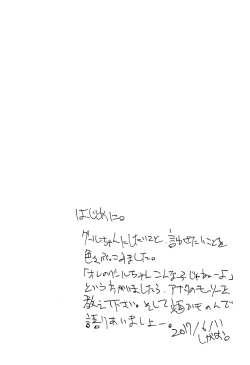 はじめに。
グールちゃんにしたいこと、言わせたいことを
色々ぶっこみました。
「オレのグールちゃんこんな子じゃねーよ」
という方がいましたら、アナタのモーソーを
教えて下さい。そして
語りあいましょー。2017/6/11